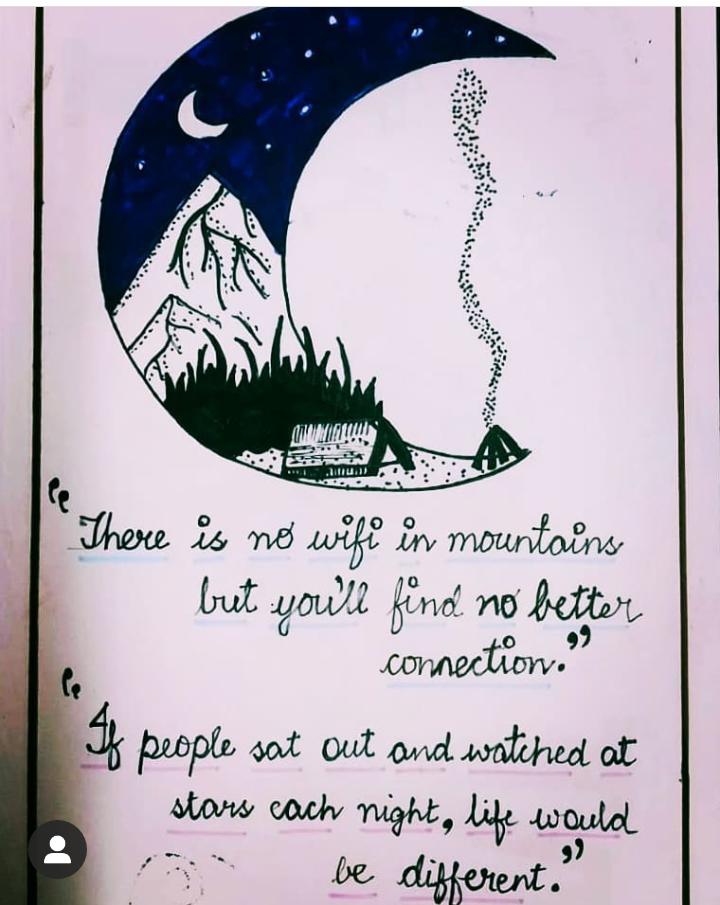 "There is no wifi in mountains
but you'll find no better
connection."
"If people sat out and watched at
stars each night, life would
be different."